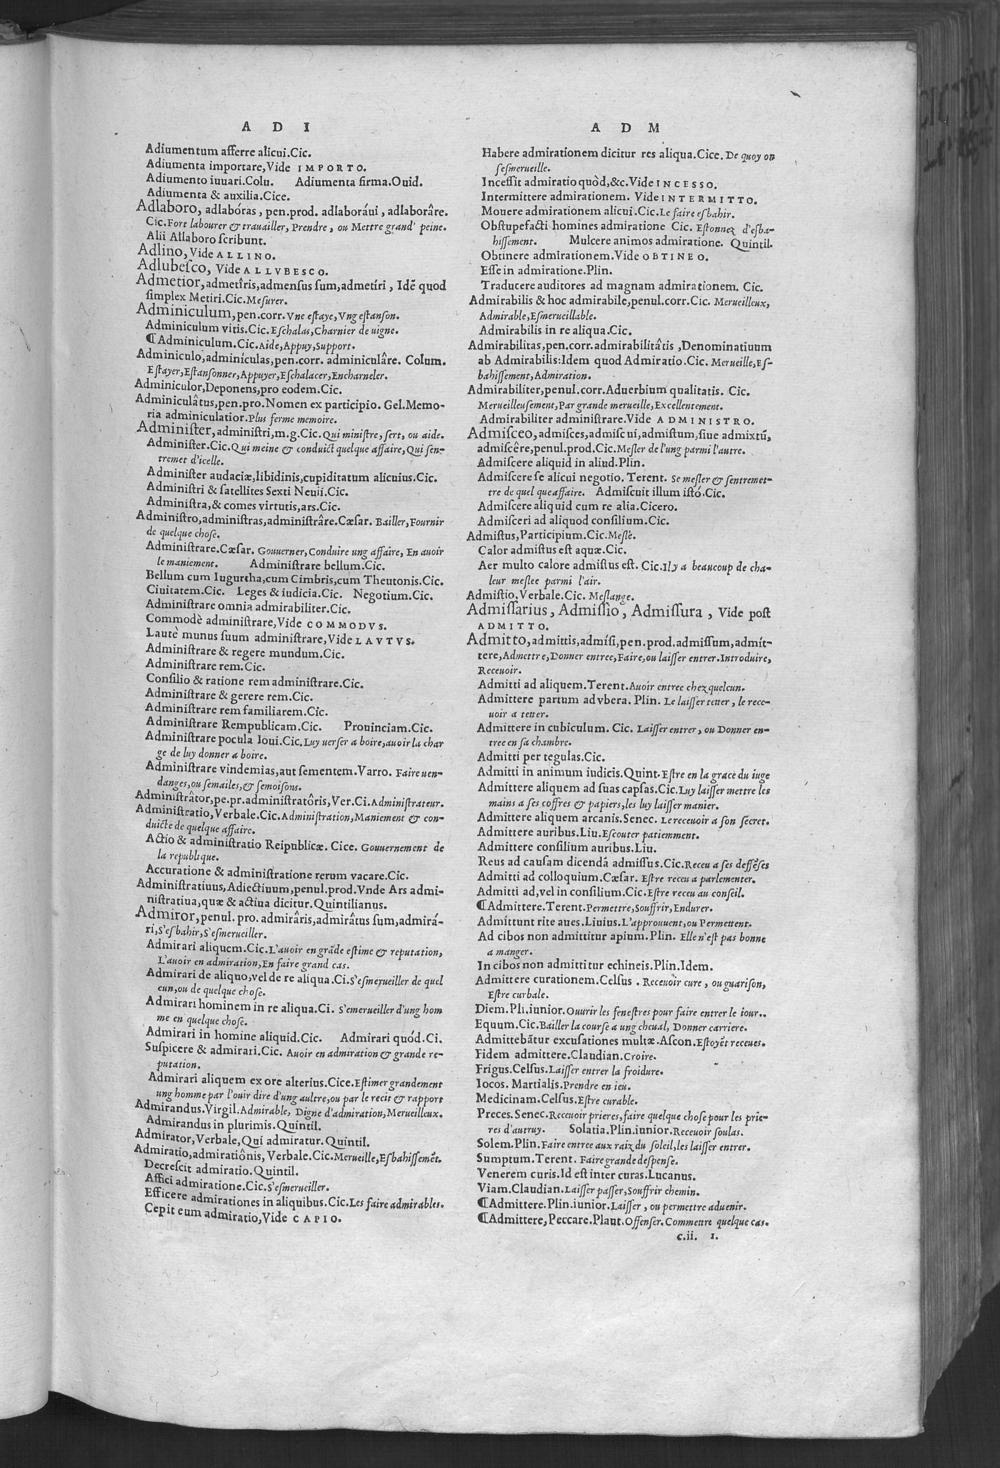 A D I
Adiumentum afferre alicui.Cic.
Adiumenta importare,Vide IMPORTO.
Adiumento iuuari.Colu. Adiumenta firma.Ouid.
Adiumenta & auxilia.Cice.
Adlaboro, adlabóras, pen.prod. adlaboráui, adlaborâre.
Cic.Fort labourer & trauailler, Prendre, ou Mettre grand' peine.
Alii Allaboro scribunt.
Adlino, Vide ALLINO.
Adlubesco, Vide ALLVBESCO.
Admetior, admetîris, admensus sum, admetíri, Idẽ quod
simplex Metiri.Cic.Mesurer.
Adminiculum, pen.corr. Vne estaye, Vng estanson.
Adminiculum vitis.Cic.Eschalas, Charnier de uigne.
¶Adminiculum.Cic.Aide, Appuy, Support.
Adminiculo, adminículas, pen.corr. adminiculâre. Colum.
Estayer, Estansonner, Appuyer, Eschalacer, Encharneler.
Adminiculor, Deponens, pro eodem.Cic.
Adminiculâtus, pen.pro. Nomen ex participio. Gel. Memo-
ria adminiculatior. Plus ferme memoire.
Administer, administri, m.g.Cic. Qui ministre, sert, ou aide.
Administer.Cic.Qui meine & conduict quelque affaire, Qui sen-
tremet d'icelle.
Administer audaciæ, libidinis, cupiditatum alicuius.Cic.
Administri & satellites Sexti Neuii.Cic.
Administra, & comes virtutis, ars.Cic.
Administro, administras, administrâre. Cæsar. Bailler, Fournir
de quelque chose.
Administrare.Cæsar. Gouuerner, Conduire ung affaire, En auoir
le maniement. Administrare bellum.Cic.
Bellum cum Iugurtha, cum Cimbris, cum Theutonis.Cic.
Ciuitatem.Cic. Leges & iudicia.Cic. Negotium.Cic.
Administrare omnia admirabiliter.Cic.
Commodè administrare, Vide COMMODVS.
Lautè munus suum administrare, Vide LAVTVS.
Administrare & regere mundum.Cic.
Administrare rem.Cic.
Consilio & ratione rem administrare.Cic.
Administrare & gerere rem.Cic.
Administrare rem familiarem.Cic.
Administrare Rempublicam.Cic. Prouinciam.Cic.
Administrare pocula Ioui.Cic.Luy uerser a boire, auoir la char
ge de luy donner a boire.
Administrare vindemias, aut sementem.Varro. Faire uen-
danges, ou semailes, & semoisons.
Administrâtor, pe.pr.administratôris, Ver.Ci.Administrateur.
Administratio, Verbale.Cic.Administration, Maniement & con-
duicte de quelque affaire.
Actio & administratio Reipublicæ. Cice. Gouuernement de
la republique.
Accuratione & administratione rerum vacare.Cic.
Administratiuus, Adiectiuum, penul.prod. Vnde Ars admi-
nistratiua, quæ & actiua dicitur. Quintilianus.
Admiror, penul. pro. admirâris, admirâtus sum, admirá-
ri, S'esbahir, S'esmerueiller.
Admirari aliquem.Cic.L'auoir en grãde estime & reputation,
L'auoir en admiration, En faire grand cas.
Admirari de aliquo, vel de re aliqua.Ci.S'esmerueiller de quel
cun, ou de quelque chose.
Admirari hominem in re aliqua.Ci. S'emerueiller d'ung hom
me en quelque chose.
Admirari in homine aliquid.Cic. Admirari quód.Ci.
Suspicere & admirari.Cic. Auoir en admiration & grande re-
putation.
Admirari aliquem ex ore alterius.Cice.Estimer grandement
ung homme par l'ouir dire d'ung aultre, ou par le recit & rapport
Admirandus.Virgil.Admirable, Digne d'admiration, Merueilleux.
Admirandus in plurimis. Quintil.
Admirator, Verbale, Qui admiratur. Quintil.
Admiratio, admiratiônis, Verbale.Cic.Merueille, Esbahissemẽt.
Decrescit admiratio.Quintil.
Affici admiratione.Cic.S'esmerueiller.
Efficere admirationes in aliquibus.Cic.Les faire admirables.
Cepit eum admiratio, Vide CAPIO.
A D M
Habere admirationem dicitur res aliqua.Cice. De quoy on
s'esmerueille.
Incessit admiratio quòd,&c.Vide INCESSO.
Intermittere admirationem. Vide INTERMITTO.
Mouere admirationem alicui.Cic.Le faire esbahir.
Obstupefacti homines admiratione Cic. Estonnez d'esba-
hissement. Mulcere animos admiratione. Quintil.
Obtinere admirationem.Vide OBTINEO.
Esse in admiratione.Plin.
Traducere auditores ad magnam admirationem. Cic.
Admirabilis & hoc admirabile, penul.corr.Cic. Merueilleux,
Admirable, Esmerueillable.
Admirabilis in re aliqua.Cic.
Admirabilitas, pen.corr.admirabilitâtis, Denominatiuum
ab Admirabilis: Idem quod Admiratio.Cic. Merueille, Es-
bahissement, Admiration.
Admirabiliter, penul.corr. Aduerbium qualitatis. Cic.
Merueilleusement, Par grande merueille, Excellentement.
Admirabiliter administrare.Vide ADMINISTRO.
Admisceo, admisces, admiscui, admistum, siue admixtũ,
admiscêre, penul.prod.Cic.Mesler de l'ung parmi l'autre.
Admiscere aliquid in aliud.Plin.
Admiscere se alicui negotio. Terent. Se mesler & sentremet-
tre de quelque affaire. Admiscuit illum istó.Cic.
Admiscere aliquid cum re alia.Cicero.
Admisceri ad aliquod consilium.Cic.
Admistus, Participium.Cic.Meslé.
Calor admistus est aquæ.Cic.
Aer multo calore admistus est. Cic.Il y a beaucoup de cha-
leur meslee parmi l'air.
Admistio, Verbale.Cic. Meslange.
Admissarius, Admissio, Admissura, Vide post
ADMITTO.
Admitto, admittis, admisi, pen.prod.admissum, admít-
tere, Admettre, Donner entree, Faire, ou laisser entrer. Introduire,
Receuoir.
Admitti ad aliquem.Terent.Auoir entree chez quelcun.
Admittere partum ad vbera. Plin. Le laisser tetter, le rece-
uoir a tetter.
Admittere in cubiculum. Cic. Laisser entrer, ou Donner en-
tree en sa chambre.
Admitti per tegulas.Cic.
Admitti in animum iudicis.Quint.Estre en la grace du iuge
Admittere aliquem ad suas capsas.Cic.Luy laisser mettre les
mains a ses coffres & papiers, les luy laisser manier.
Admittere aliquem arcanis.Senec. Le receuoir a son secret.
Admittere auribus.Liu.Escouter patiemment.
Admittere consilium auribus.Liu.
Reus ad causam dicendã admissus.Cic.Receu a ses deffẽses
Admitti ad colloquium.Cæsar. Estre receu a parlementer.
Admitti ad, vel in consilium.Cic.Estre receu au conseil.
¶Admittere.Terent.Permettre, Souffrir, Endurer.
Admittunt rite aues.Liuius.L'approuuent, ou Permettent.
Ad cibos non admittitur apium.Plin. Elle n'est pas bonne
a manger.
In cibos non admittitur echineis.Plin.Idem.
Admittere curationem.Celsus. Receuoir cure, ou guarison,
Estre curbale.
Diem.Pli.iunior.Ouurir les fenestres pour faire entrer le iour..
Equum.Cic.Bailler la course a ung cheual, Donner carriere.
Admittebãtur excusationes multæ.Ascon.Estoyẽt receues.
Fidem admittere.Claudian.Croire.
Frigus.Celsus.Laisser entrer la froidure.
Iocos. Martialis.Prendre en ieu.
Medicinam.Celsus.Estre curable.
Preces.Senec.Receuoir prieres, faire quelque chose pour les prie-
res d'autruy. Solatia.Plin.iunior.Receuoir soulas.
Solem.Plin.Faire entree aux raix du soleil, les laisser entrer.
Sumptum.Terent. Faire grande despense.
Venerem curis.Id est inter curas.Lucanus.
Viam.Claudian.Laisser passer, Souffrir chemin.
¶Admittere.Plin.iunior.Laisser, ou permettre aduenir.
¶Admittere, Peccare.Plaut.Offenser. Commettre quelque cas.
c.ii. 1.